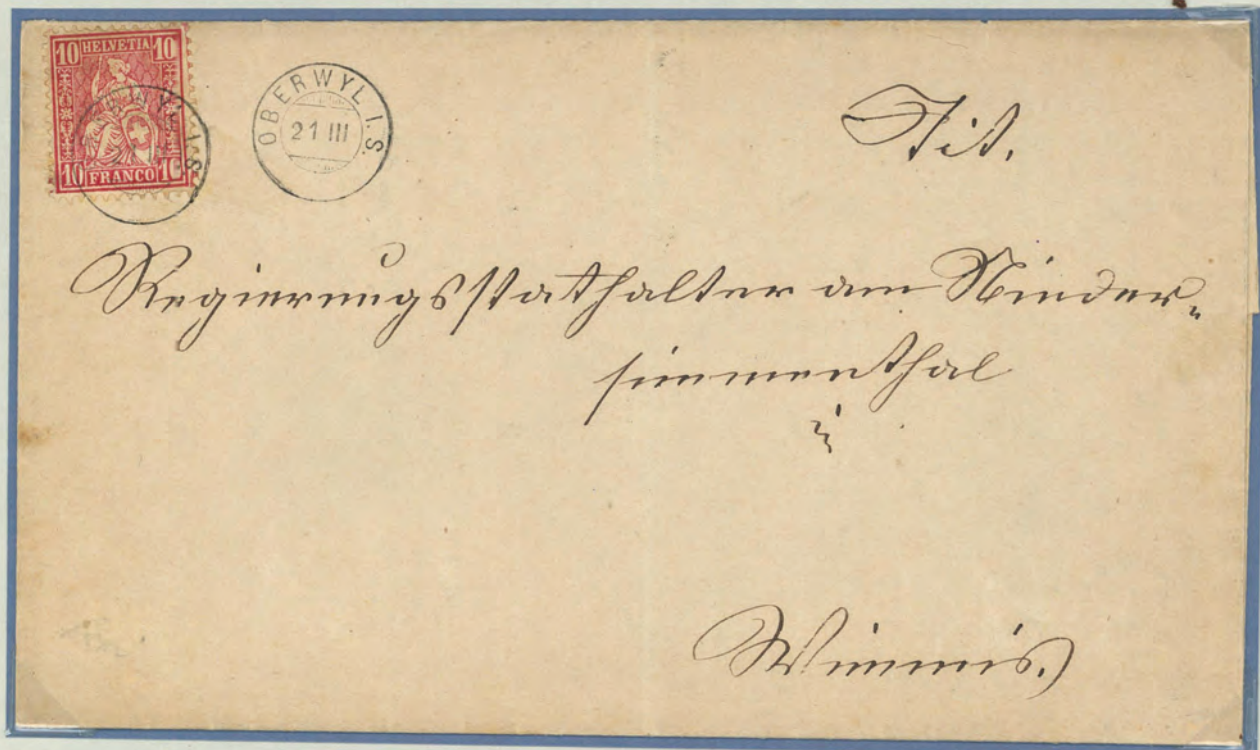 10 HELVETIA 10
10 FRANCO 10
OBERWYL I.S.
OBERWYL I.S.
21 III
Tit.
Regierungsstathalter am Nieder-
simmenthal
in
Wimmis.